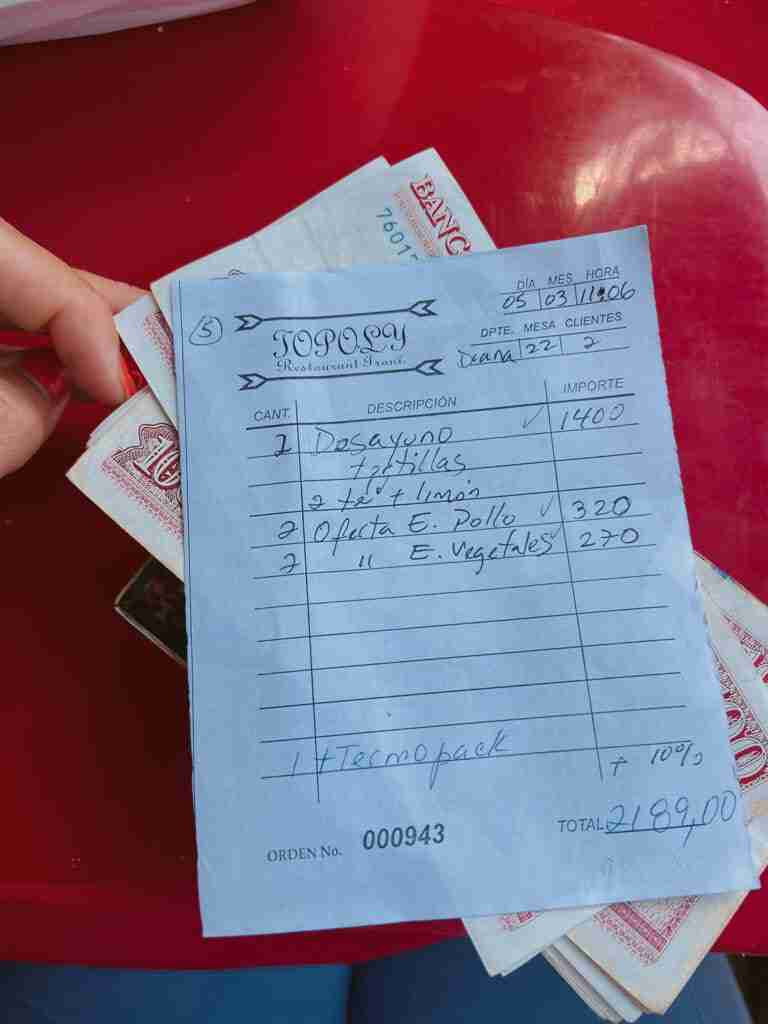 BANC
7601
5
TOPOLY
Restaurant Iraní
DÍA MES HORA
05 03 11:06
DPTE. MESA CLIENTES
Deana 22 2
CANT. DESCRIPCIÓN IMPORTE
2 Desayuno ✓ 1400
tortillas
2 té + limón
2 Oferta E. Pollo ✓ 320
2 " E. Vegetales ✓ 270
1 + Termopack
+ 10%
ORDEN No. 000943
TOTAL 2189,00